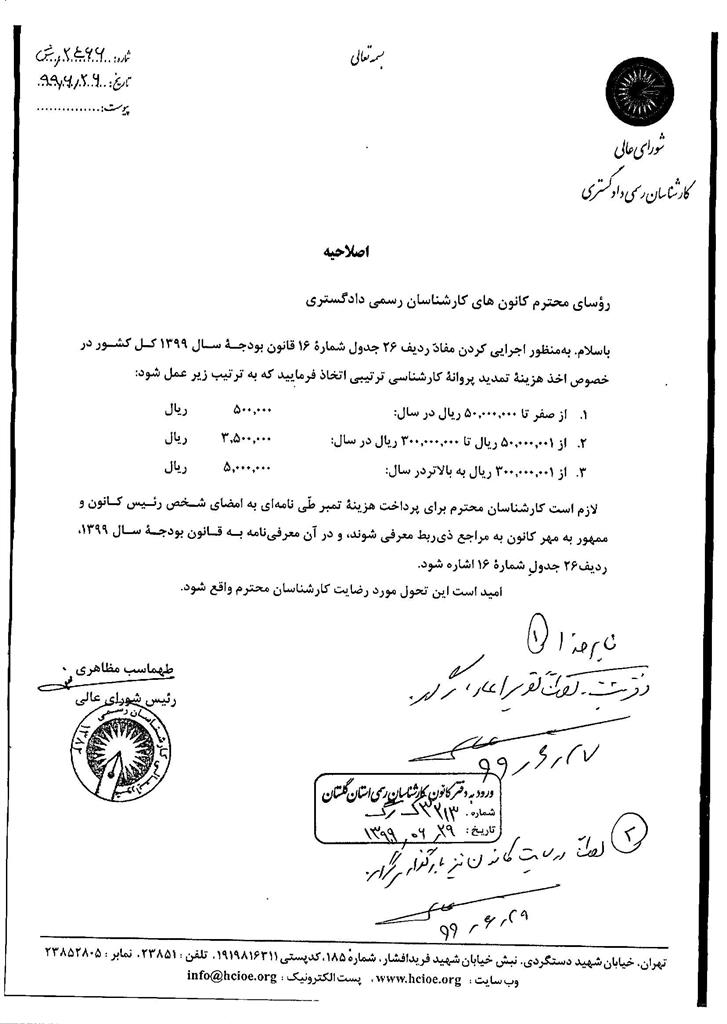 بسمه تعالی
شماره:
تاریخ: ۹۹/۶/۲۶
پیوست:
شورای عالی
کارشناسان رسمی دادگستری
اصلاحیه
رؤسای محترم کانون های کارشناسان رسمی دادگستری
باسلام. به‌منظور اجرایی کردن مفادّ ردیف ۲۶ جدول شمارۀ ۱۶ قانون بودجـۀ سـال ۱۳۹۹ کـل کشـور در
خصوص اخذ هزینۀ تمدید پروانۀ کارشناسی ترتیبی اتخاذ فرمایید که به ترتیب زیر عمل شود:
۱. از صفر تا ۵۰,۰۰۰,۰۰۰ ریال در سال: ۵۰۰,۰۰۰ ریال
۲. از ۵۰,۰۰۰,۰۰۱ ریال تا ۳۰۰,۰۰۰,۰۰۰ ریال در سال: ۳,۵۰۰,۰۰۰ ریال
۳. از ۳۰۰,۰۰۰,۰۰۱ ریال به بالاتردر سال: ۵,۰۰۰,۰۰۰ ریال
لازم است کارشناسان محترم برای پرداخت هزینۀ تمبر طّی نامه‌ای به امضای شـخص رئـیس کـانون و
ممهور به مهر کانون به مراجع ذی‌ربط معرفی شوند، و در آن معرفی‌نامه بـه قـانون بودجـۀ سـال ۱۳۹۹،
ردیف۲۶ جدولِ شمارۀ ۱۶ اشاره شود.
امید است این تحول مورد رضایت کارشناسان محترم واقع شود.
طهماسب مظاهری
رئیس شورای عالی
شورای عالی کارشناسان رسمی
۱۳۸۲
۱
۹۹/۶/۲۷
ورود به دفتر کانون کارشناسان رسمی استان گلستان
شماره:
تاریخ: ۱۳۹۹/۰۶/۲۹
۲ در سایت کانون نیز
۹۹/۶/۲۹
تهران. خیابان شهید دستگردی. نبش خیابان شهید فریدافشار، شمارۀ ۱۸۵، کدپستی ۱۹۱۹۸۱۶۳۱۱. تلفن : ۲۳۸۵۱. نمابر : ۲۳۸۵۲۸۰۵
وب سایت : www.hcioe.org . پست الکترونیک : info@hcioe.org